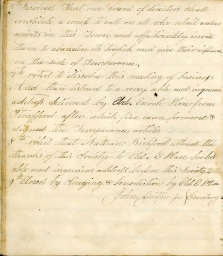 5 Resolved That our board of directors shall
constitute a comt. to call on all who retail ardent
spirits in this Town and affectionately invite
them to abandon its traffick and give their influence
on the side of Temperance.
6th voted to dissolve this meeting of business
And then listened to a very able and ingenious
address delivered by Eld. Enoch Place from
Strafford after which, some came forward &
signed the Temperance articles
8th voted that Nathan Bickford extend the
thanks of this Society to Eld. E Place for his
able and ingenious address before this Society
9th Closed by Singing & benediction by Eld E Place
John Secretary